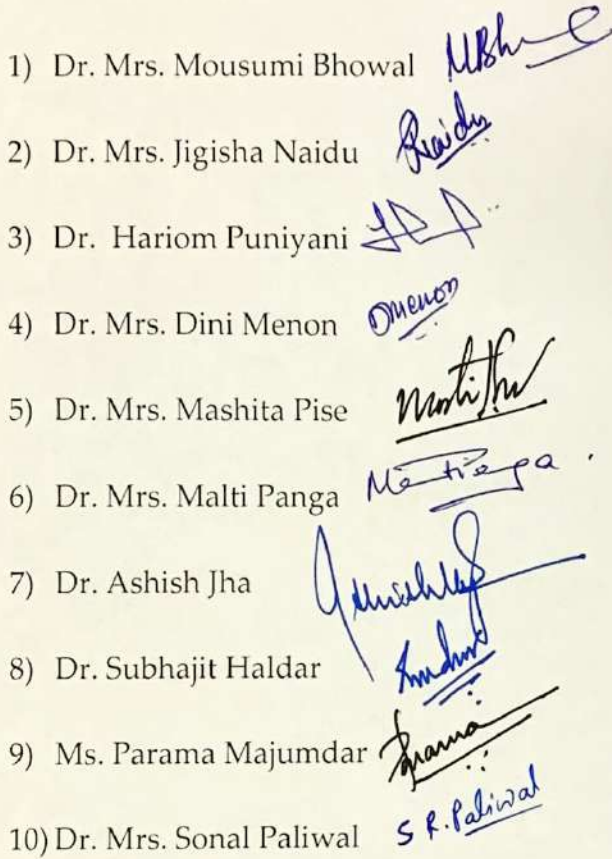 1) Dr. Mrs. Mousumi Bhowal MBh
2) Dr. Mrs. Jigisha Naidu Naidu
3) Dr. Hariom Puniyani
4) Dr. Mrs. Dini Menon Dmenon
5) Dr. Mrs. Mashita Pise
6) Dr. Mrs. Malti Panga
7) Dr. Ashish Jha
8) Dr. Subhajit Haldar
9) Ms. Parama Majumdar Parama
10) Dr. Mrs. Sonal Paliwal S R. Paliwal